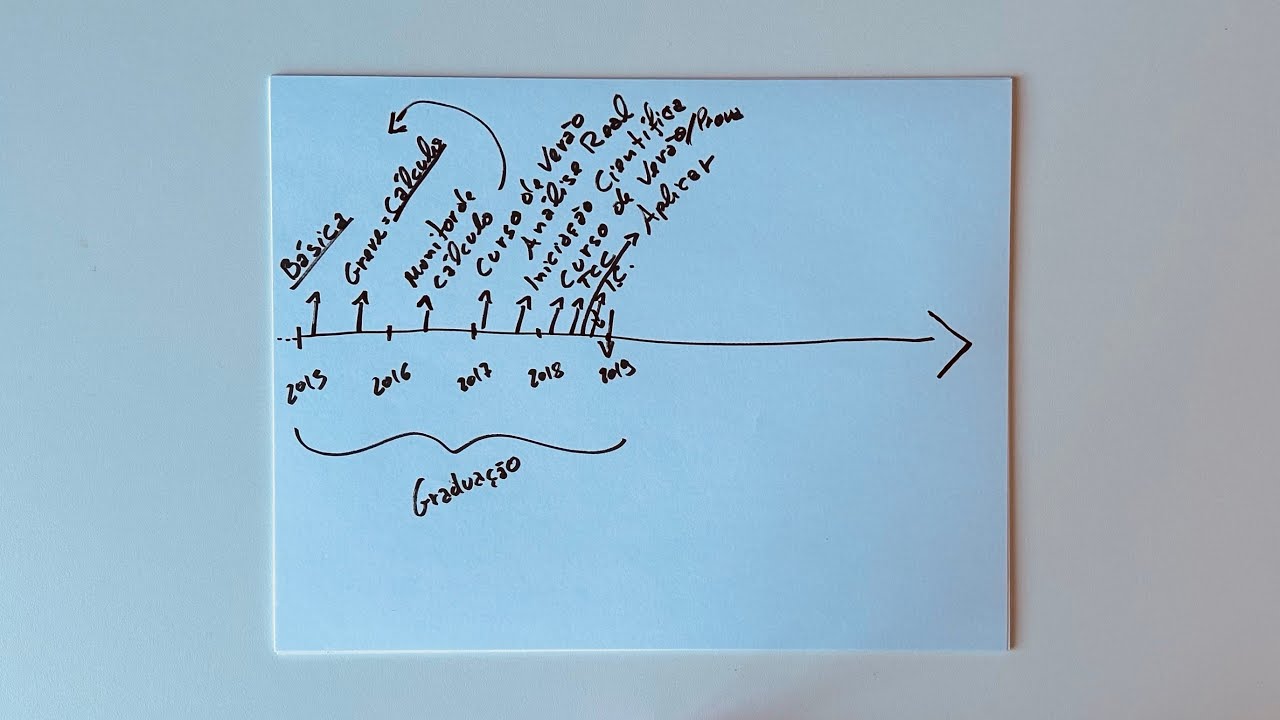 Básica
Greve : Cálculo
Monitor de
Cálculo
Curso de Verão
Análise Real
Iniciação Científica
Curso de Verão/Prova
TCC
I.C.
Aplicar
2015
2016
2017
2018
2019
Graduação